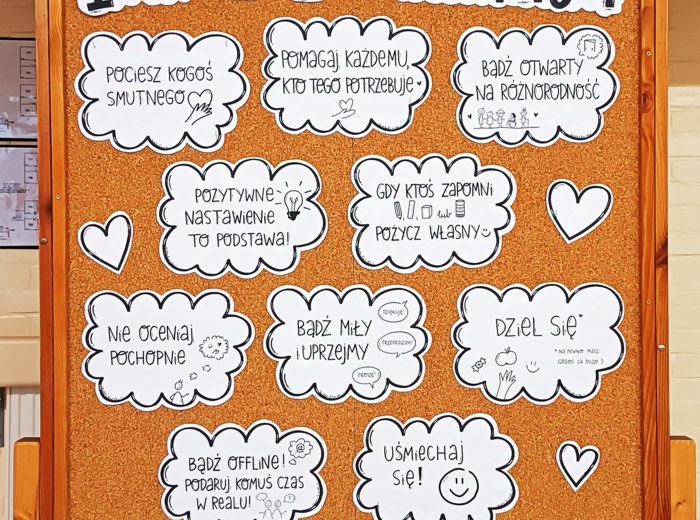 POCIESZ KOGOŚ
SMUTNEGO
POMAGAJ KAŻDEMU,
KTO TEGO POTRZEBUJE
BĄDŹ OTWARTY
NA RÓŻNORODNOŚĆ
POZYTYWNE
NASTAWIENIE
TO PODSTAWA!
GDY KTOŚ ZAPOMNI
lub
POŻYCZ WŁASNY
NIE OCENIAJ
POCHOPNIE
BĄDŹ MIŁY
i UPRZEJMY
DZIĘKUJĘ!
PRZEPRASZAM!
PROSZĘ!
DZIEL SIĘ*
* NA PEWNO MASZ
CZEGOŚ ZA DUŻO :)
BĄDŹ OFFLINE!
@
PODARUJ KOMUŚ CZAS
W REALU!
UŚMIECHAJ
SIĘ!